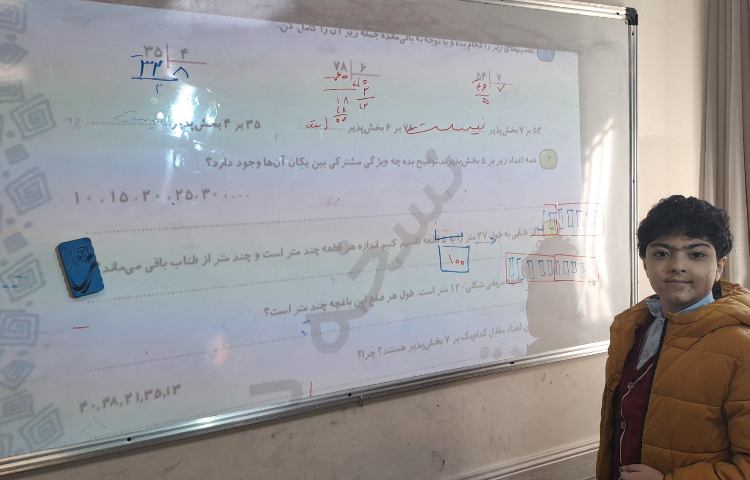 تقسیم‌های زیر را انجام بده و با توجه به باقی‌مانده جمله زیر آن را کامل کن.
۵۴ ۷ ۷۸ ۶ ۳۵ ۴
۵۴ بر ۷ بخش‌پذیر نیست ۷۸ بر ۶ بخش‌پذیر است ۳۵ بر ۴ بخش‌پذیر نیست
همه اعداد زیر بر ۵ بخش‌پذیرند توضیح بده چه ویژگی مشترکی بین یکان آن‌ها وجود دارد؟
۱۰ ، ۱۵ ، ۲۰ ، ۲۵ ، ۳۰ ، ....
طنابی به طول ۳۷ متر را به ۵ قطعه تقسیم کنیم اندازه هر قطعه چند متر است و چند متر از طناب باقی می‌ماند؟
۱۰۰
مربعی شکلی ۱۲۰ متر است. طول هر ضلع این باغچه چند متر است؟
اعداد مقابل کدام‌یک بر ۷ بخش‌پذیر هستند؟ چرا؟
۴۰,۴۸,۲۱,۳۵,۱۳